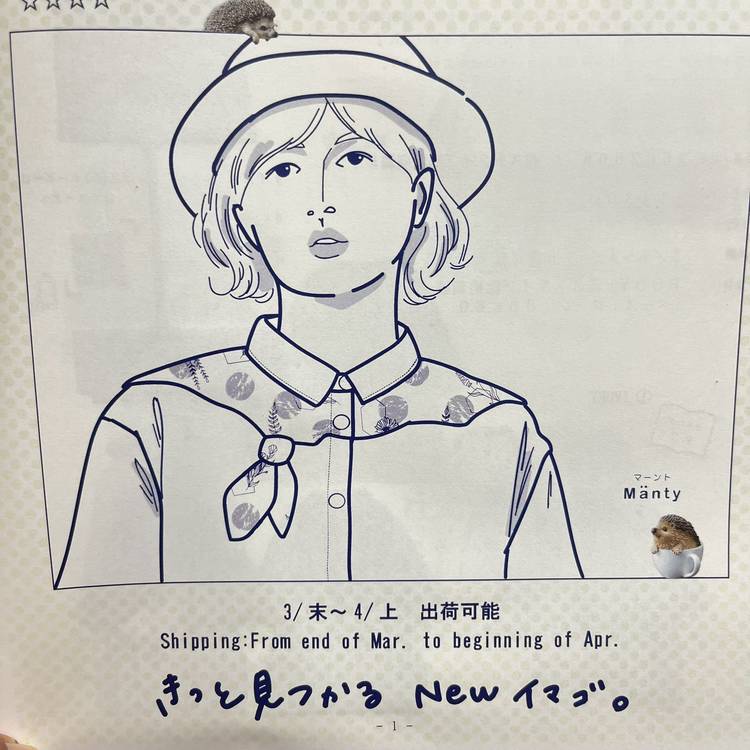 ☆☆☆☆
マーント
Mänty
3/末～4/上 出荷可能
Shipping:From end of Mar. to beginning of Apr.
きっと見つかる New イマゴ。
- 1 -